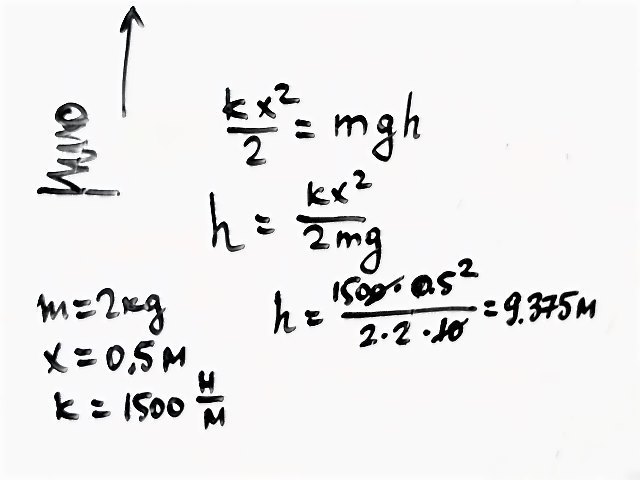 kx²/2 = mgh
h = kx²/2mg
m = 2kg
x = 0,5 м
k = 1500 Н/м
h = 1500·0.5²/2·2·10 = 9.375м